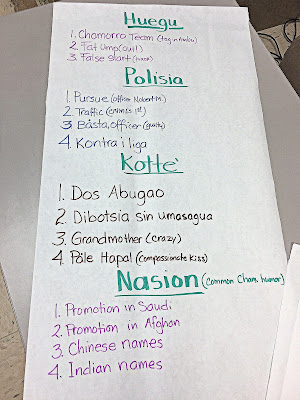 Huegu
1. Chamorro Team (tag in Malou)
2. Tat Ump (out!)
3. False start (track)
Polisia
1. Pursue (officer Robert M.)
2. Traffic (CNMI's 1st)
3. Båsta, officer (guilty)
4. Kontra i liga
Kotte'
1. Dos Abugao
2. Dibotsia sin umasagua
3. Grandmother (crazy)
4. Påle' Hapa! (compassionate kiss)
Nasion (Common Cham. humor)
1. Promotion in Saudi
2. Promotion in Afghan
3. Chinese names
4. Indian names